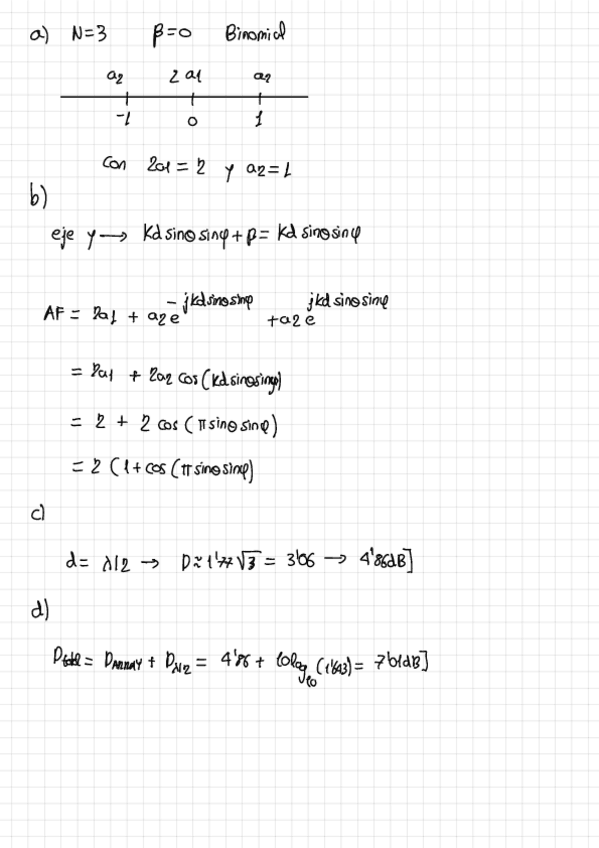 a) N=3 β=0 Binomial
a2 2a1 a2
-1 0 1
Con 2a1 = 2 y a2 = 1
b)
eje y → Kd sinθ sinφ + β = Kd sinθ sinφ
AF = 2a1 + a2 e^-jkd sinθ sinφ + a2 e^jkd sinθ sinφ
= 2a1 + 2a2 cos(Kd sinθ sinφ)
= 2 + 2 cos(π sinθ sinφ)
= 2 (1+cos(π sinθ sinφ)
c)
d = λ/2 → D ≈ 1'77 √3 = 3'06 → 4'86dB]
d)
Dtotal = DARRAY + Dλ/2 = 4'86 + 10log10 (1'643) = 7'01dB]